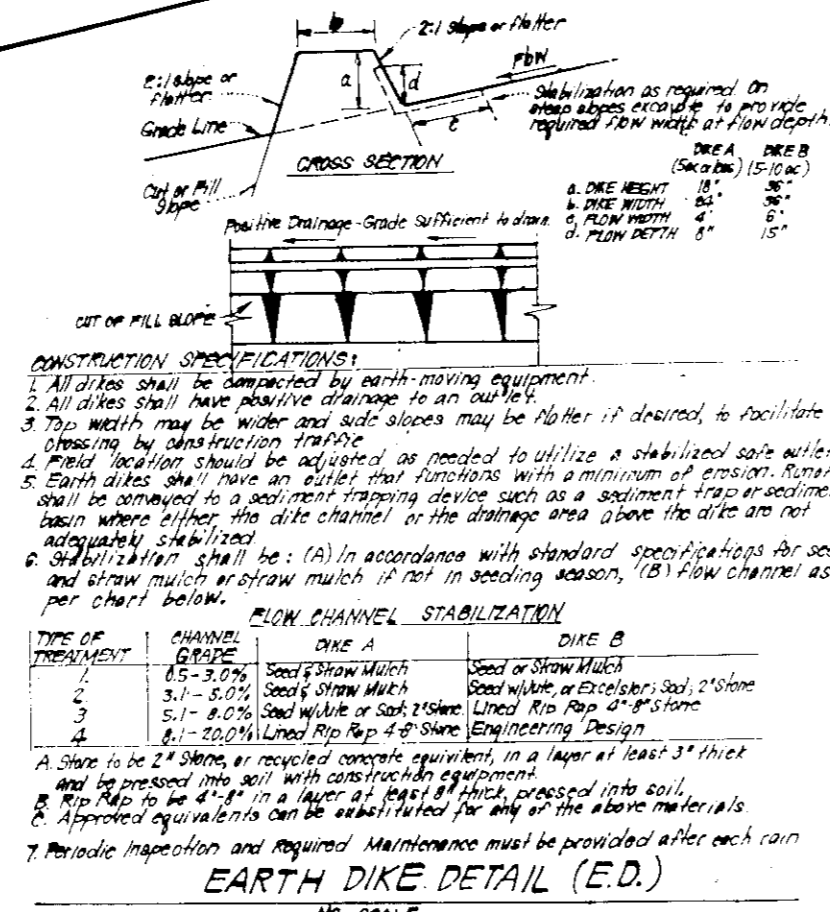 b
2:1 slope or flatter
Flow
2:1 slope or
flatter
a
d
Stabilization as required. On
steep slopes excavate to provide
required flow width at flow depth.
Grade Line
c
CROSS SECTION
Cut or Fill
Slope
DIKE A DIKE B
(5-10 ac)
a. DIKE HEIGHT 18" 36"
b. DIKE WIDTH 24" 36"
c. FLOW WIDTH 4' 6'
d. FLOW DEPTH 8" 15"
Positive Drainage-Grade Sufficient to drain.
CUT OF FILL SLOPE
CONSTRUCTION SPECIFICATIONS:
1. All dikes shall be compacted by earth-moving equipment.
2. All dikes shall have positive drainage to an outlet.
3. Top width may be wider and side slopes may be flatter if desired, to facilitate
crossing by construction traffic
4. Field location should be adjusted as needed to utilize a stabilized safe outlet
5. Earth dikes shall have an outlet that functions with a minimum of erosion. Runof
shall be conveyed to a sediment trapping device such as a sediment trap or sedime
basin where either the dike channel or the drainage area above the dike are not
adequately stabilized.
6. Stabilization shall be: (A) In accordance with standard specifications for see
and straw mulch or straw mulch if not in seeding season, (B) flow channel as
per chart below.
FLOW CHANNEL STABILIZATION
TYPE OF TREATMENT CHANNEL GRADE DIKE A DIKE B
1. 0.5-3.0% Seed & Straw Mulch Seed or Straw Mulch
2 3.1-5.0% Seed & Straw Mulch Seed w/Jute, or Excelsior; Sod; 2" Stone
3 5.1-8.0% Seed w/Jute or Sod; 2" Stone Lined Rip Rap 4"-8" Stone
4 8.1-20.0% Lined Rip Rap 4-8" Stone Engineering Design
A. Stone to be 2" Stone, or recycled concrete equivilent, in a layer at least 3" thick
and be pressed into soil with construction equipment.
B. Rip Rap to be 4"-8" in a layer at least 8" thick, pressed into soil.
C. Approved equivalents can be substituted for any of the above materials.
7. Periodic Inspection and Required Maintenance must be provided after each rain
EARTH DIKE DETAIL (E.D.)
NO SCALE